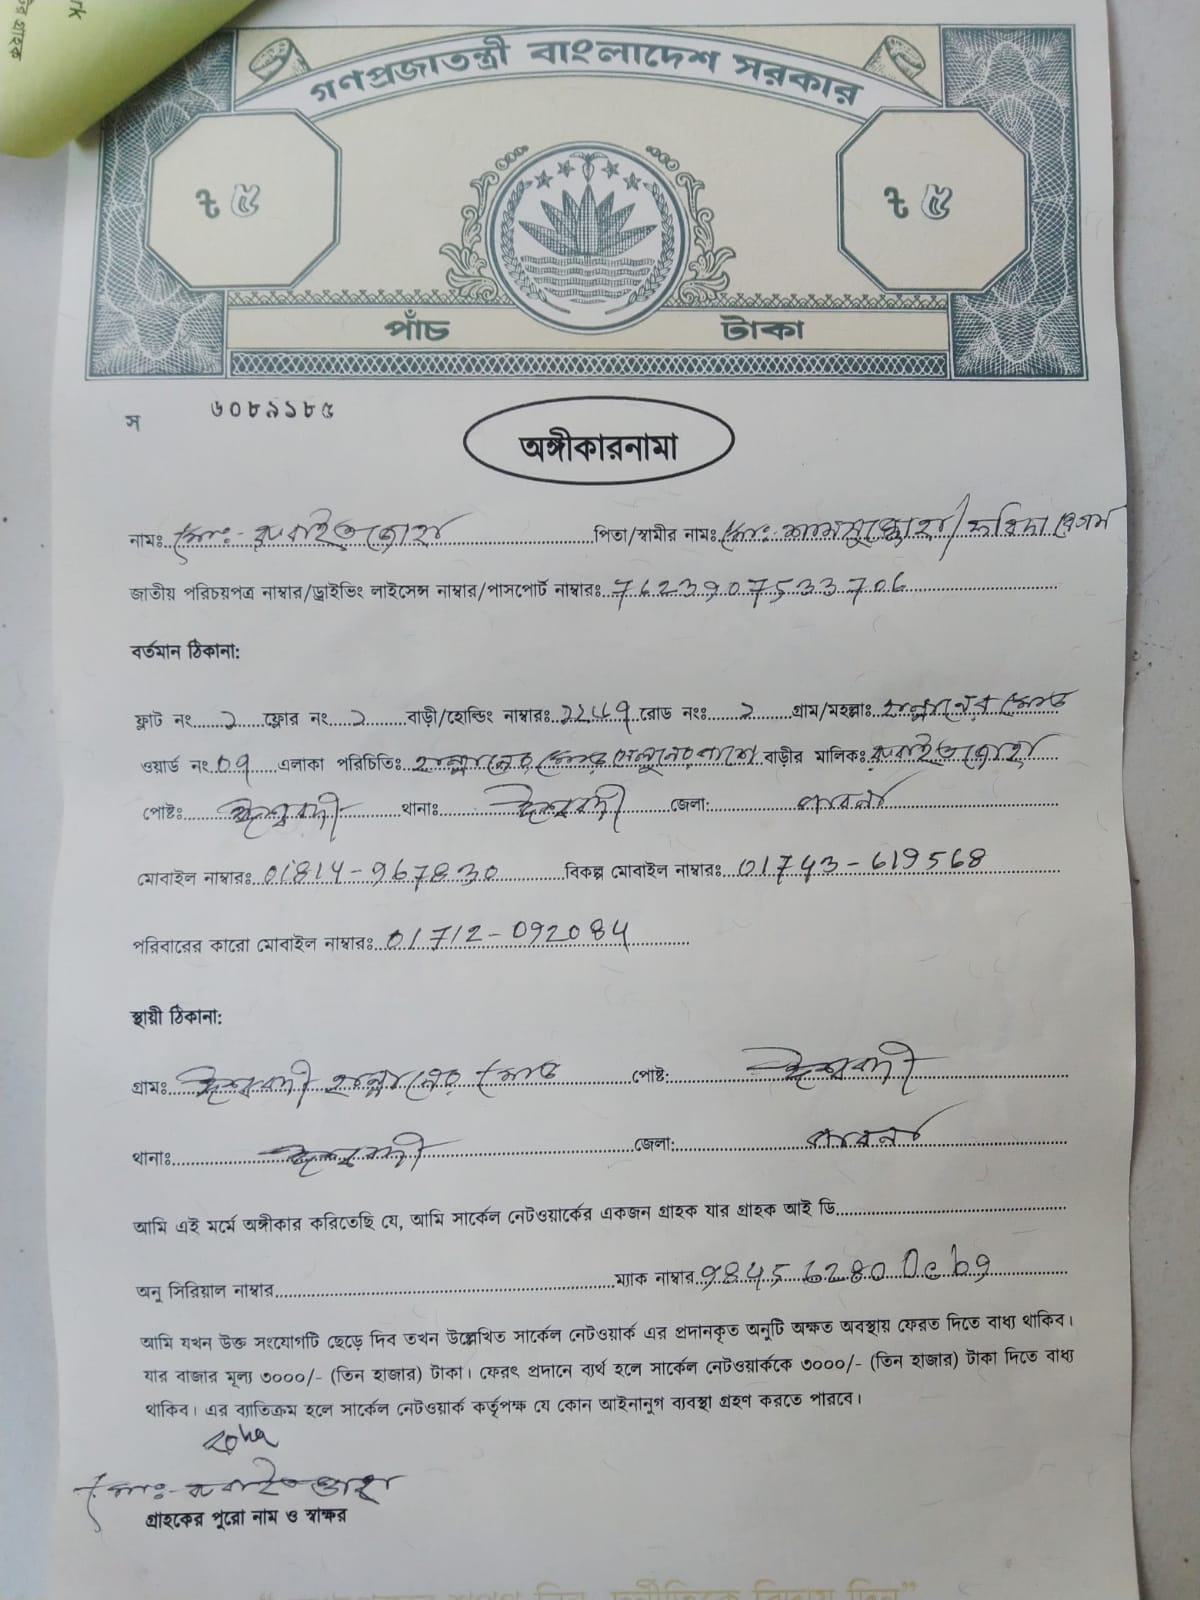 গণপ্রজাতন্ত্রী বাংলাদেশ সরকার
৳ ৫ ৳ ৫
পাঁচ টাকা
স ৬০৮৯১৮৫
অঙ্গীকারনামা
নামঃ মোঃ- রুবাইত জোহা পিতা/স্বামীর নামঃ মোঃ- শামসুজ্জোহা/ফরিদা বেগম
জাতীয় পরিচয়পত্র নাম্বার/ড্রাইভিং লাইসেন্স নাম্বার/পাসপোর্ট নাম্বারঃ 7623907533706
বর্তমান ঠিকানা:
ফ্লাট নং ১ ফ্লোর নং ১ বাড়ী/হোল্ডিং নাম্বারঃ রোড নংঃ ১ গ্রাম/মহল্লাঃ মোড়
ওয়ার্ড নং ০৭ এলাকা পরিচিতিঃ মোড় পাশে বাড়ীর মালিকঃ রুবাইত জোহা
পোষ্টঃ ঈশ্বরদী থানাঃ ঈশ্বরদী জেলা: পাবনা
মোবাইল নাম্বারঃ 01814-967830 বিকল্প মোবাইল নাম্বারঃ 01743-619568
পরিবারের কারো মোবাইল নাম্বারঃ 01712-092084
স্থায়ী ঠিকানা:
গ্রামঃ ঈশ্বরদী মোড় পোষ্ট: ঈশ্বরদী
থানাঃ ঈশ্বরদী জেলা: পাবনা
আমি এই মর্মে অঙ্গীকার করিতেছি যে, আমি সার্কেল নেটওয়ার্কের একজন গ্রাহক যার গ্রাহক আই ডি
অনু সিরিয়াল নাম্বার ম্যাক নাম্বার 984562800cb9
আমি যখন উক্ত সংযোগটি ছেড়ে দিব তখন উল্লেখিত সার্কেল নেটওয়ার্ক এর প্রদানকৃত অনুটি অক্ষত অবস্থায় ফেরত দিতে বাধ্য থাকিব।
যার বাজার মূল্য ৩০০০/- (তিন হাজার) টাকা। ফেরৎ প্রদানে ব্যর্থ হলে সার্কেল নেটওয়ার্ককে ৩০০০/- (তিন হাজার) টাকা দিতে বাধ্য
থাকিব। এর ব্যতিক্রম হলে সার্কেল নেটওয়ার্ক কর্তৃপক্ষ যে কোন আইনানুগ ব্যবস্থা গ্রহণ করতে পারবে।
মোঃ- রুবাইত জোহা
গ্রাহকের পুরো নাম ও স্বাক্ষর